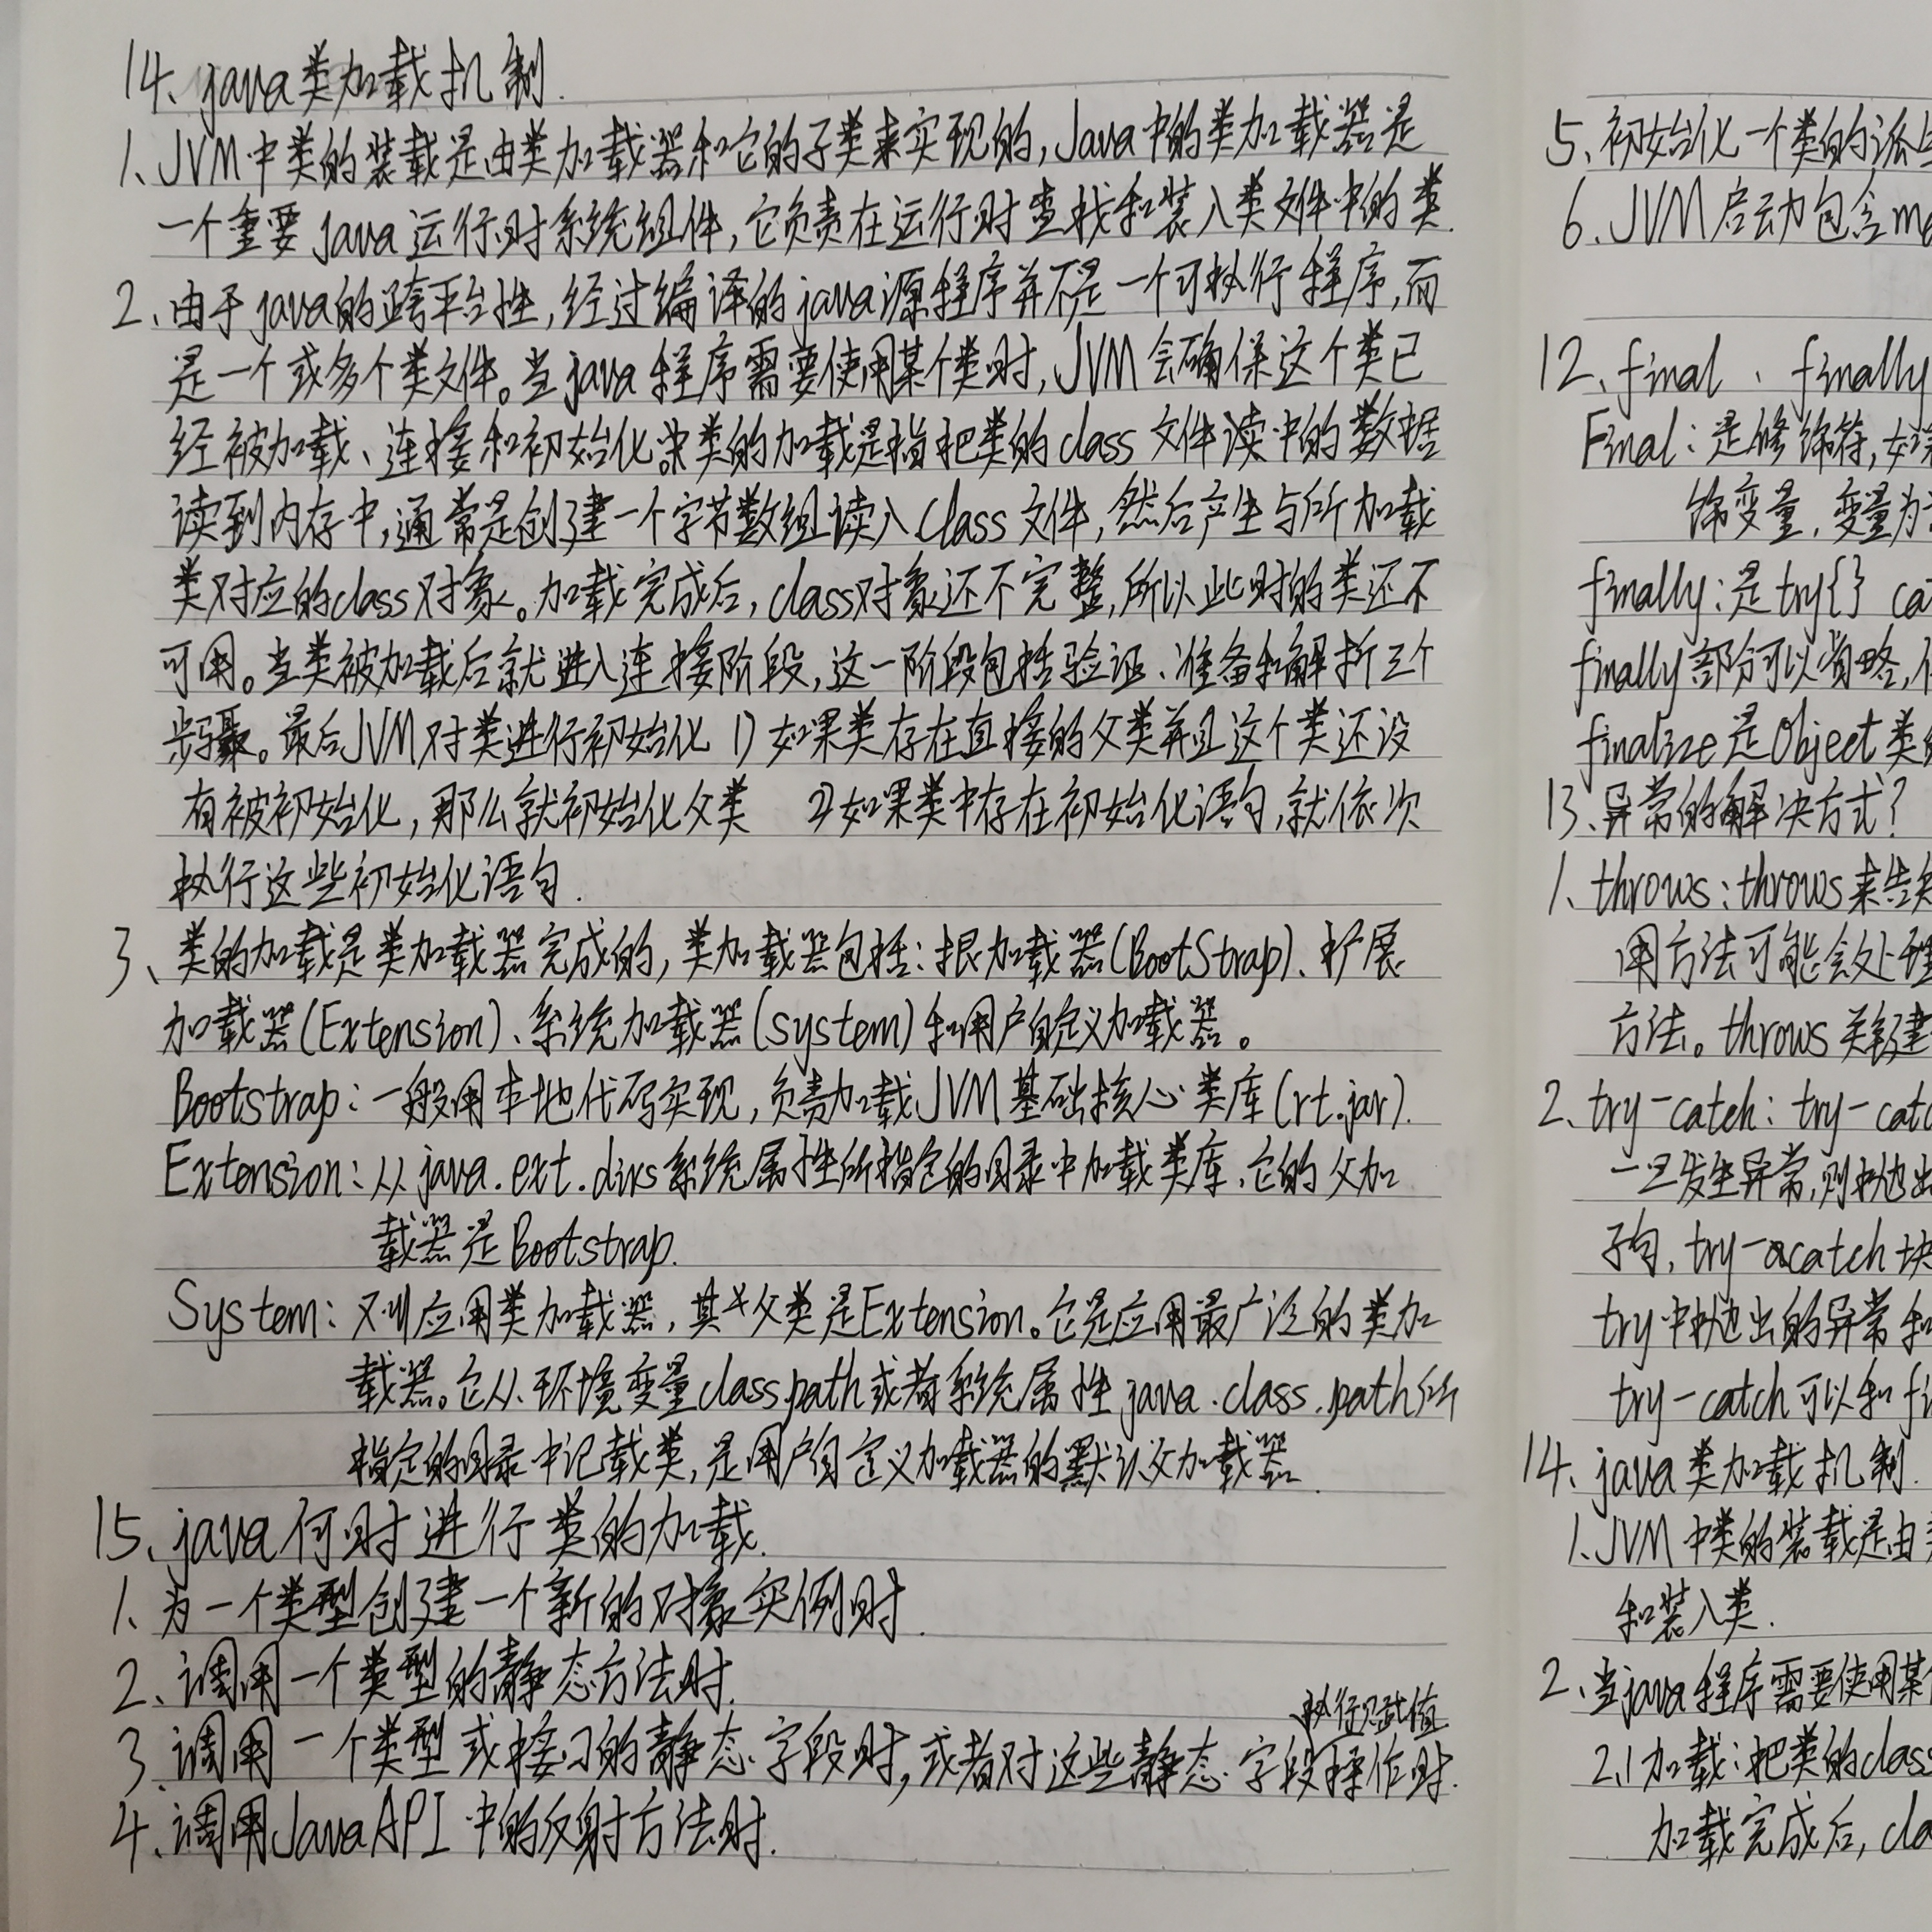 14、java类加载机制.
1、JVM中类的装载是由类加载器和它的子类来实现的,Java中的类加载器是
一个重要java运行时系统组件,它负责在运行时查找和装入类文件中的类.
2、由于java的跨平台性,经过编译的java源程序并不是一个可执行程序,而
是一个或多个类文件。当java程序需要使用某个类时,JVM会确保这个类已
经被加载、连接和初始化。类的加载是指把类的class文件读中的数据
读到内存中,通常是创建一个字节数组读入class文件,然后产生与所加载
类对应的class对象。加载完成后,class对象还不完整,所以此时的类还不
可用。当类被加载后就进入连接阶段,这一阶段包括验证、准备和解析三个
步骤。最后JVM对类进行初始化 1)如果类存在直接的父类并且这个类还没
有被初始化,那么就初始化父类 2)如果类中存在初始化语句,就依次
执行这些初始化语句.
3、类的加载是类加载器完成的,类加载器包括:根加载器(BootStrap)、扩展
加载器(Extension)、系统加载器(system)和用户自定义加载器。
Bootstrap:一般用本地代码实现,负责加载JVM基础核心类库(rt.jar).
Extension:从java.ext.dirs系统属性所指定的目录中加载类库,它的父加
载器是Bootstrap.
System:又叫应用类加载器,其父类是Extension。它是应用最广泛的类加
载器。它从环境变量classpath或者系统属性java.class.path所
指定的目录中记载类,是用户自定义加载器的默认父加载器.
15、java何时进行类的加载.
1、为一个类型创建一个新的对象实例时.
2、调用一个类型的静态方法时.
执行赋值
3、调用一个类型或接口的静态字段时,或者对这些静态字段操作时.
4、调用Java API中的反射方法时.
5、初始化一个类的派
6、JVM启动包含ma
12、final、finally
Final:是修饰符,如
饰变量,变量为
finally:是try{} ca
finally部分可以省略,
finalize是Object类
13、异常的解决方式?
1、throws:throws来告知
用方法可能会处理
方法。throws关键
2、try-catch:try-catc
一旦发生异常,则抛出
子句,try-acatch块
try中抛出的异常和
try-catch可以和fi
14、java类加载机制.
1、JVM中类的装载是由
和装入类.
2、当java程序需要使用某
2.1加载:把类的class
加载完成后,cla